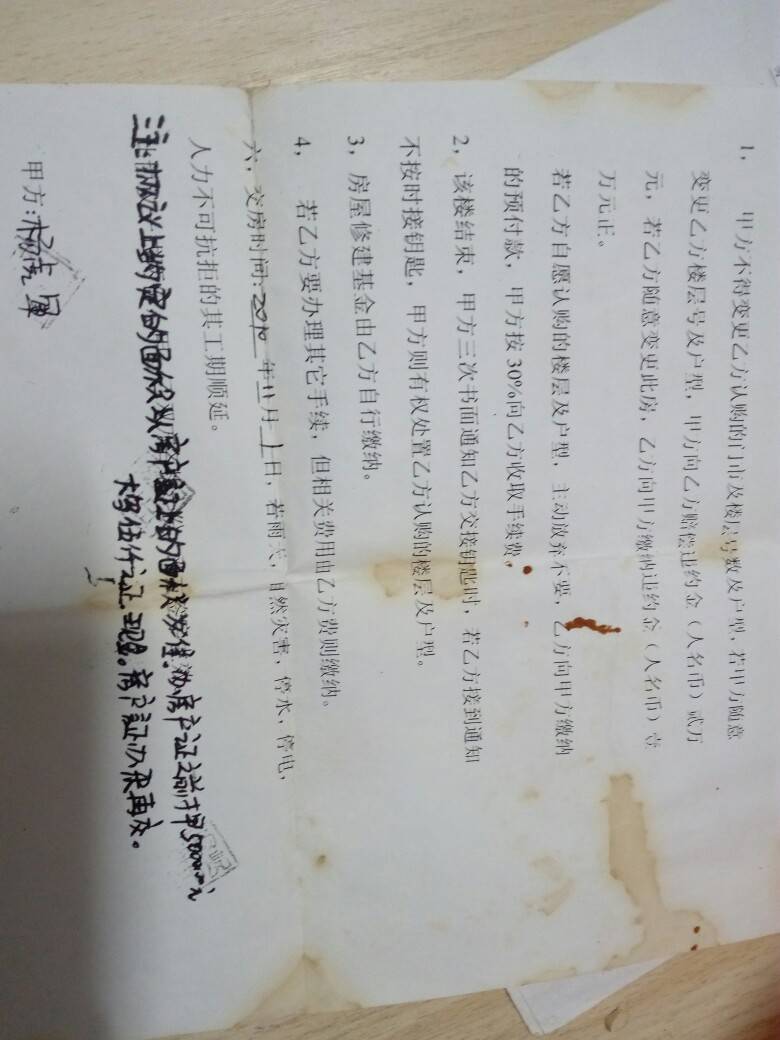 1、 甲方不得变更乙方认购的门市及楼层号数及户型,若甲方随意
变更乙方楼层号及户型,甲方向乙方赔偿违约金(人名币)贰万
元,若乙方随意变更此房,乙方向甲方缴纳违约金(人名币)壹
万元正。
若乙方自愿认购的楼层及户型,主动放弃不要,乙方向甲方缴纳
的预付款,甲方按30%向乙方收取手续费,
2、该楼结束,甲方三次书面通知乙方交接钥匙时,若乙方接到通知
不按时接钥匙,甲方则有权处置乙方认购的楼层及户型。
3、房屋修建基金由乙方自行缴纳。
4、 若乙方要办理其它手续,但相关费用由乙方费则缴纳。
六,交房时间:年11月1日,若雨天,自然灾害,停水,停电,
人力不可抗拒的其工期顺延。
注:协议上的面积以房产证上的面积为准。办房产证之前押50000元,
房产证办来再交。
甲方: